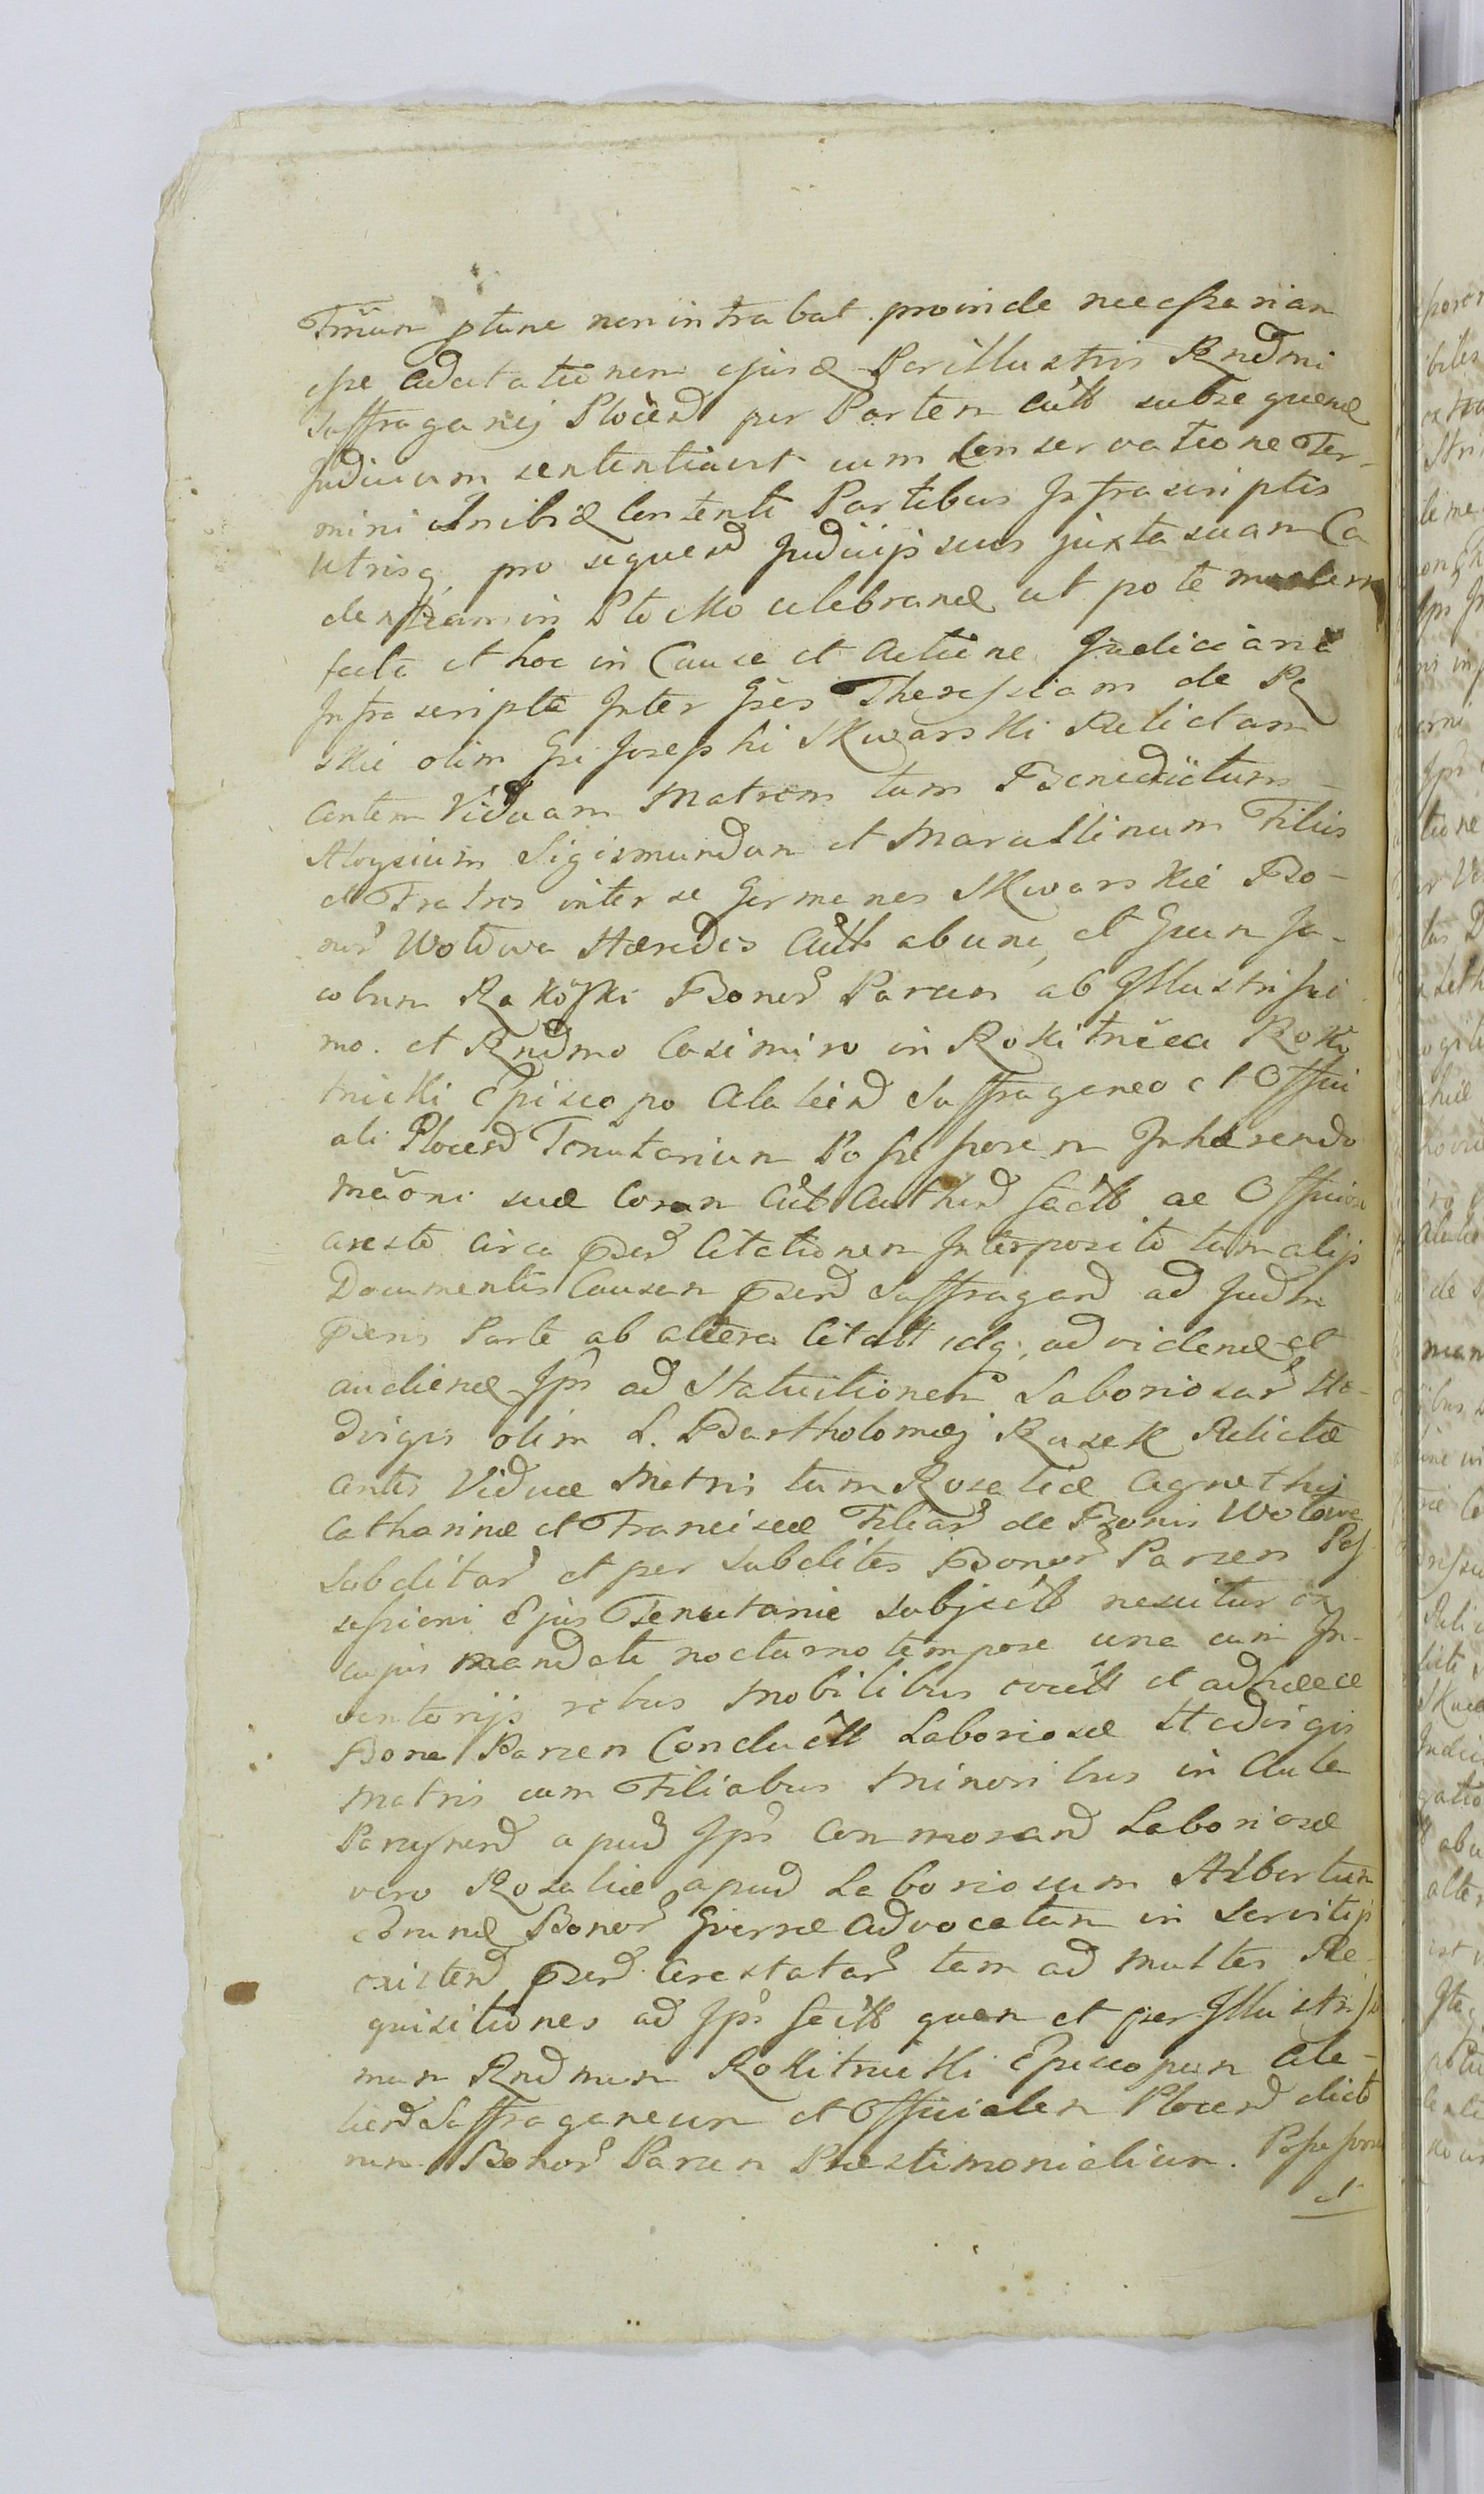 Tmum ptunc non intrabat proinde necessariam
esse Adcitationem ejusd Perillustris Rndmi
Suffraganej Plocen per Partem Actt subsequend
Judicium sententiavit cum Conservatione Ter-
mini in Contenti Partibus Infrascriptis
Utrisq pro sequen Judicijs suis juxta suam Ca
dentiam in Plocko celebrand ut pote modern
facta et hoc in Causa et Actione Judiciarie
Infrascripta Inter Gsos Theressiam de Rą
skie olim Gsi Josephi Skwarski Relictam
Viduam Matrem tum Benedictum
Aloysium Sigismundum et Marcellinum Filios
et Fratres inter se Germanos Skwarskie Bo-
nor Wolowa Hæredes Actt ab una, et Gsum Ja-
cobum Rakowski Bonor Parcen ab Illustrissi
mo. et Rndmo Casimiro in Rokitnica Roki
tnicki Episcopo Alalien Suffraganeo et Offici
ali Plocen Tenutarium Possessorem Inhærendo
mãoni suæ Coram Act Authen factt ac Officios
aresto circa psen Citationem Interposito tum alijs
Documentis Causam psen Suffragan ad Judm
psens Parte ab altera Citatt idq, ad vidend et
audiend Ips ad Statuitionem Laboriosar He-
dvigis olim L. Bartholomæj Rusek Relictæ
Viduæ Matris tum Rosaliæ Agnethis
Catharinæ et Franciscæ Filiar de Bonis Wolowa
Subditar et per subditos Bonor Parcen Pos
sessioni Ejus Tenutariæ subjectt nescitur an
cujus mandato nocturno tempore una cum In-
ventorijs rebus mobilibus et adhæcce
Bona Parcen Conductt Laboriosæ Hedvigis
Matris cum Filiabus Minoribus in Aula
apud Ips Commoran Laboriosæ
vero Rosaliæ apud Laboriosum Albertum
Bonor Advocatum in Servitijs
existen psen Arestatar tam ad multas Re-
quisitiones ad Ips factt quam et per Illustrissi
mum Rndmum Rokitnicki Episcopum Ala-
lien Suffraganeum et Officialem Plocen dicto
rum Bonor Parcen Præstimonialium. Possessorem
et